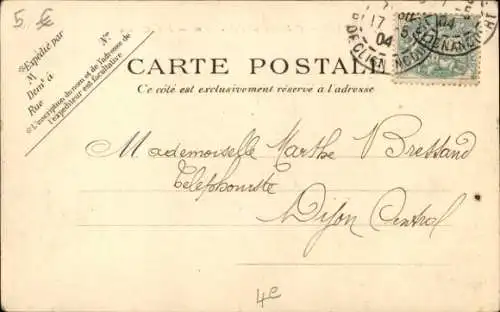 5 €
Expédié par
N°
M
Dom<sup>t</sup> à
Rue
L'inscription du nom et de l'adresse de
l'expéditeur est facultative
17
04
CARTE POSTALE
Ce côté est exclusivement réservé à l'adresse
Mademoiselle Marthe Bressand
Téléphoniste
Dijon Central
4e